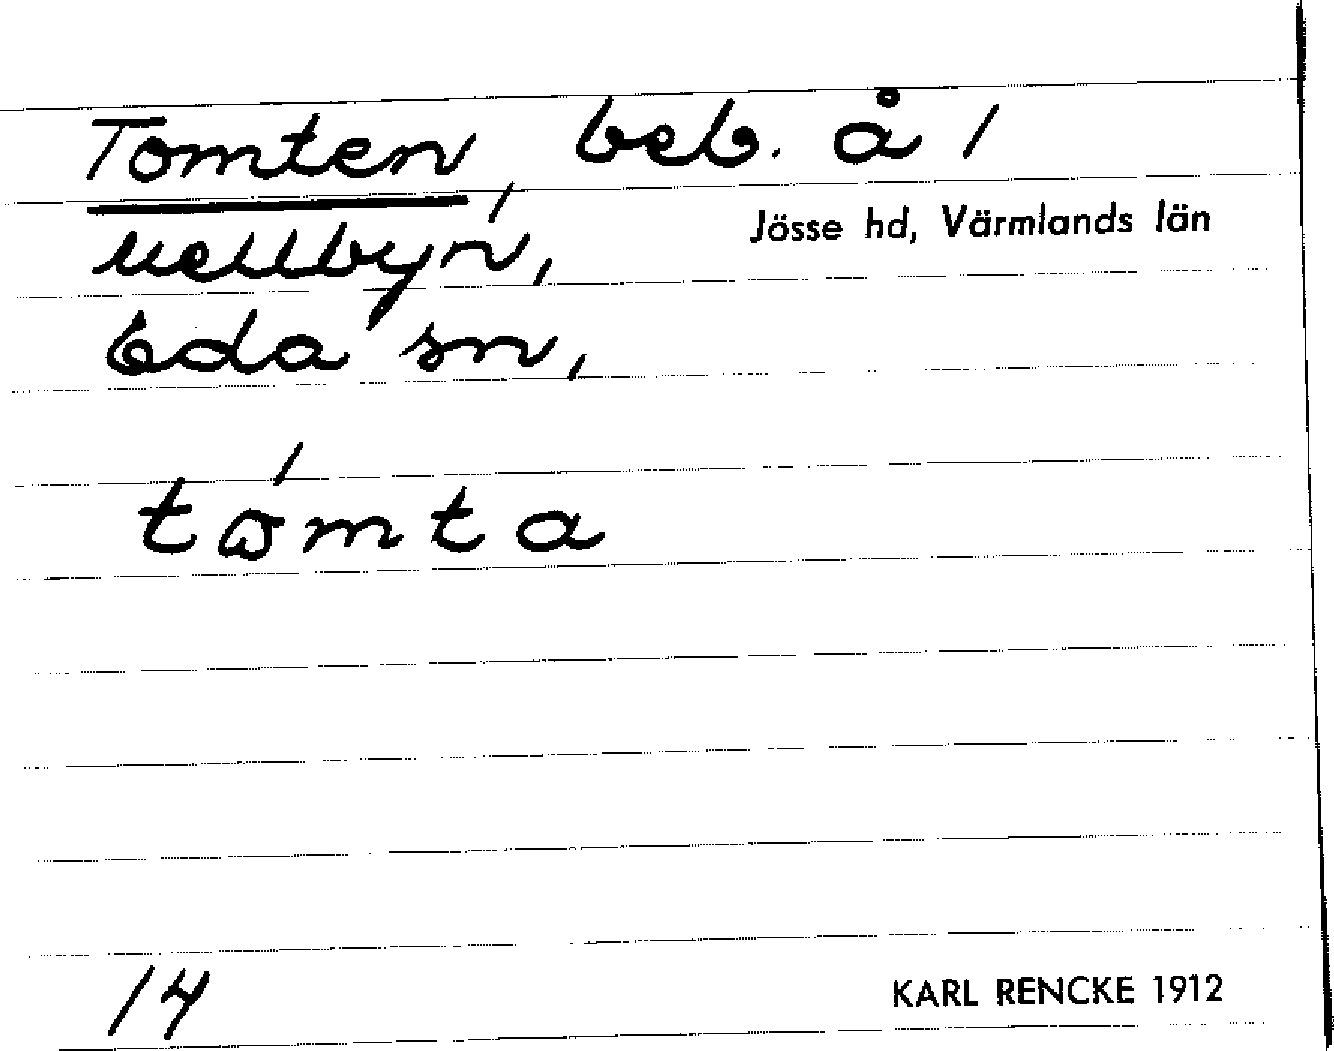 Tomten, beb. å 1
Jösse hd, Värmlands län
Mellbyn,
Eda sn,
14
KARL RENCKE 1912